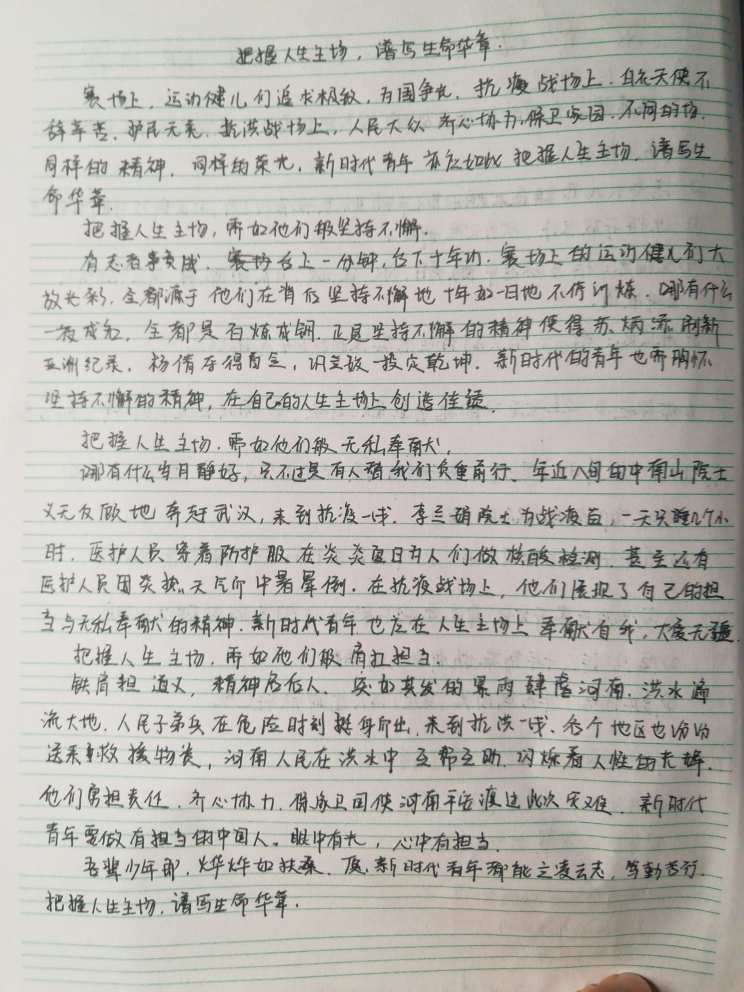 把握人生主场，谱写生命华章.
赛场上，运动健儿们追求极致，为国争光. 抗疫战场上. 白衣天使不
辞辛苦. 护民无恙. 抗洪战场上，人民大众齐心协力，保卫家园. 不同的场.
同样的精神，同样的荣光，新时代青年亦应如此把握人生主场，谱写生
命华章.
把握人生主场，需如他们般坚持不懈.
有志者事竟成. 台上一分钟，台下十年功. 赛场上的运动健儿们大
放光彩，全都源于他们在背后坚持不懈地十年如一日地不停训炼. 哪有什么
一夜成名，全都是百炼成钢. 正是坚持不懈的精神使得苏炳添刷新
亚洲纪录，杨倩夺得首金，巩立姣一投定乾坤. 新时代的青年也需胸怀
坚持不懈的精神，在自己的人生主场上创造佳绩.
把握人生主场. 需如他们般无私奉献.
哪有什么岁月静好，只不过是有人替我们负重前行. 年近八旬的钟南山院士
义无反顾地奔赴武汉，来到抗疫一线. 李兰娟院士为战疫苗，一天只睡几个小
时. 医护人员穿着防护服在炎炎夏日为人们做核酸检测. 甚至还有
医护人员因炎热天气而中暑晕倒. 在抗疫战场上，他们展现了自己的担
当与无私奉献的精神. 新时代青年也应在人生主场上奉献自我，大爱无疆.
把握人生主场，需如他们般肩扛担当.
铁肩担道义，精神启后人. 突如其发的暴雨肆虐河南，洪水遍
流大地. 人民子弟兵在危险时刻挺身而出，来到抗洪一线. 各个地区也纷纷
送来救援物资，河南人民在洪水中互帮互助. 闪烁着人性的光辉.
他们勇担责任. 齐心协力. 保家卫国使河南平安渡过此次灾难. 新时代
青年要做有担当的中国人。眼中有光，心中有担当.
吾辈少年郎，烨烨如扶桑. 愿新时代青年都能立凌云志，笃勤苦行.
把握人生主场，谱写生命华章.